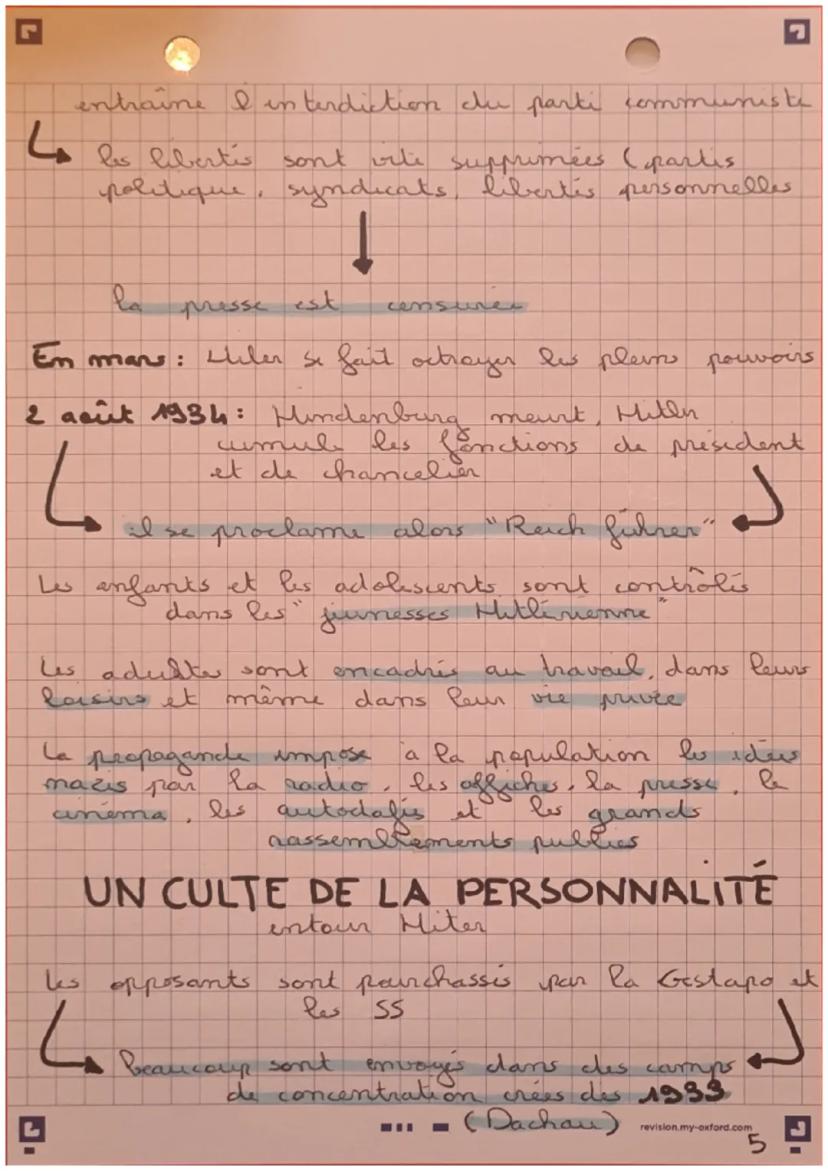 entraîne l'interdiction du parti communiste
les libertés sont vite supprimées (partis
politique, syndicats, libertés personnelles
la presse est censurée
En mars : Hiler se fait octroyer les pleins pouvoirs
2 août 1934 : Hindenburg meurt, Hitler
cumule les fonctions de président
et de chancelier
il se proclame alors "Reich führer"
Les enfants et les adolescents sont contrôlés
dans les "jeunesses Hitlérienne"
Les adultes sont encadrés au travail, dans leurs
loisirs et même dans leur vie privée
La propagande impose à la population les idées
nazis par la radio, les affiches, la presse, le
cinéma, les autodafés et les grands
rassemblements publics
UN CULTE DE LA PERSONNALITÉ
entour Hiter
Les opposants sont pourchassés par la Gestapo et
les SS
beaucoup sont envoyés dans des camps
de concentration crées des 1933
(Dachau)
revision.my-oxford.com
5